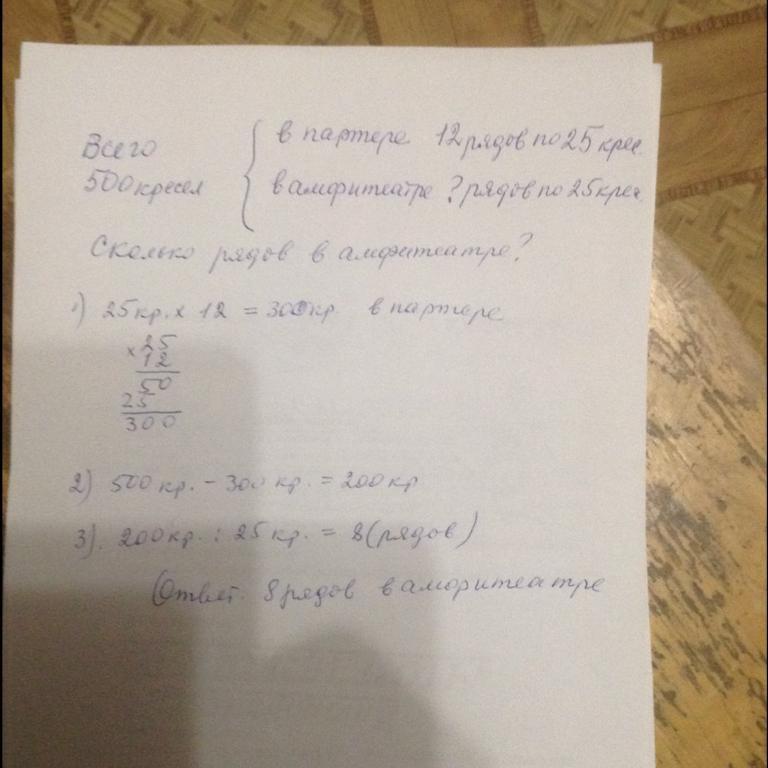 Всего
500 кресел
в партере 12 рядов по 25 крес.
в амфитеатре ? рядов по 25 крес.
Сколько рядов в амфитеатре?
1) 25 кр. х 12 = 300 кр. в партере
× 25
12
50
25
300
2) 500 кр. - 300 кр. = 200 кр
3). 200 кр. : 25 кр. = 8 (рядов)
Ответ. 8 рядов в амфитеатре